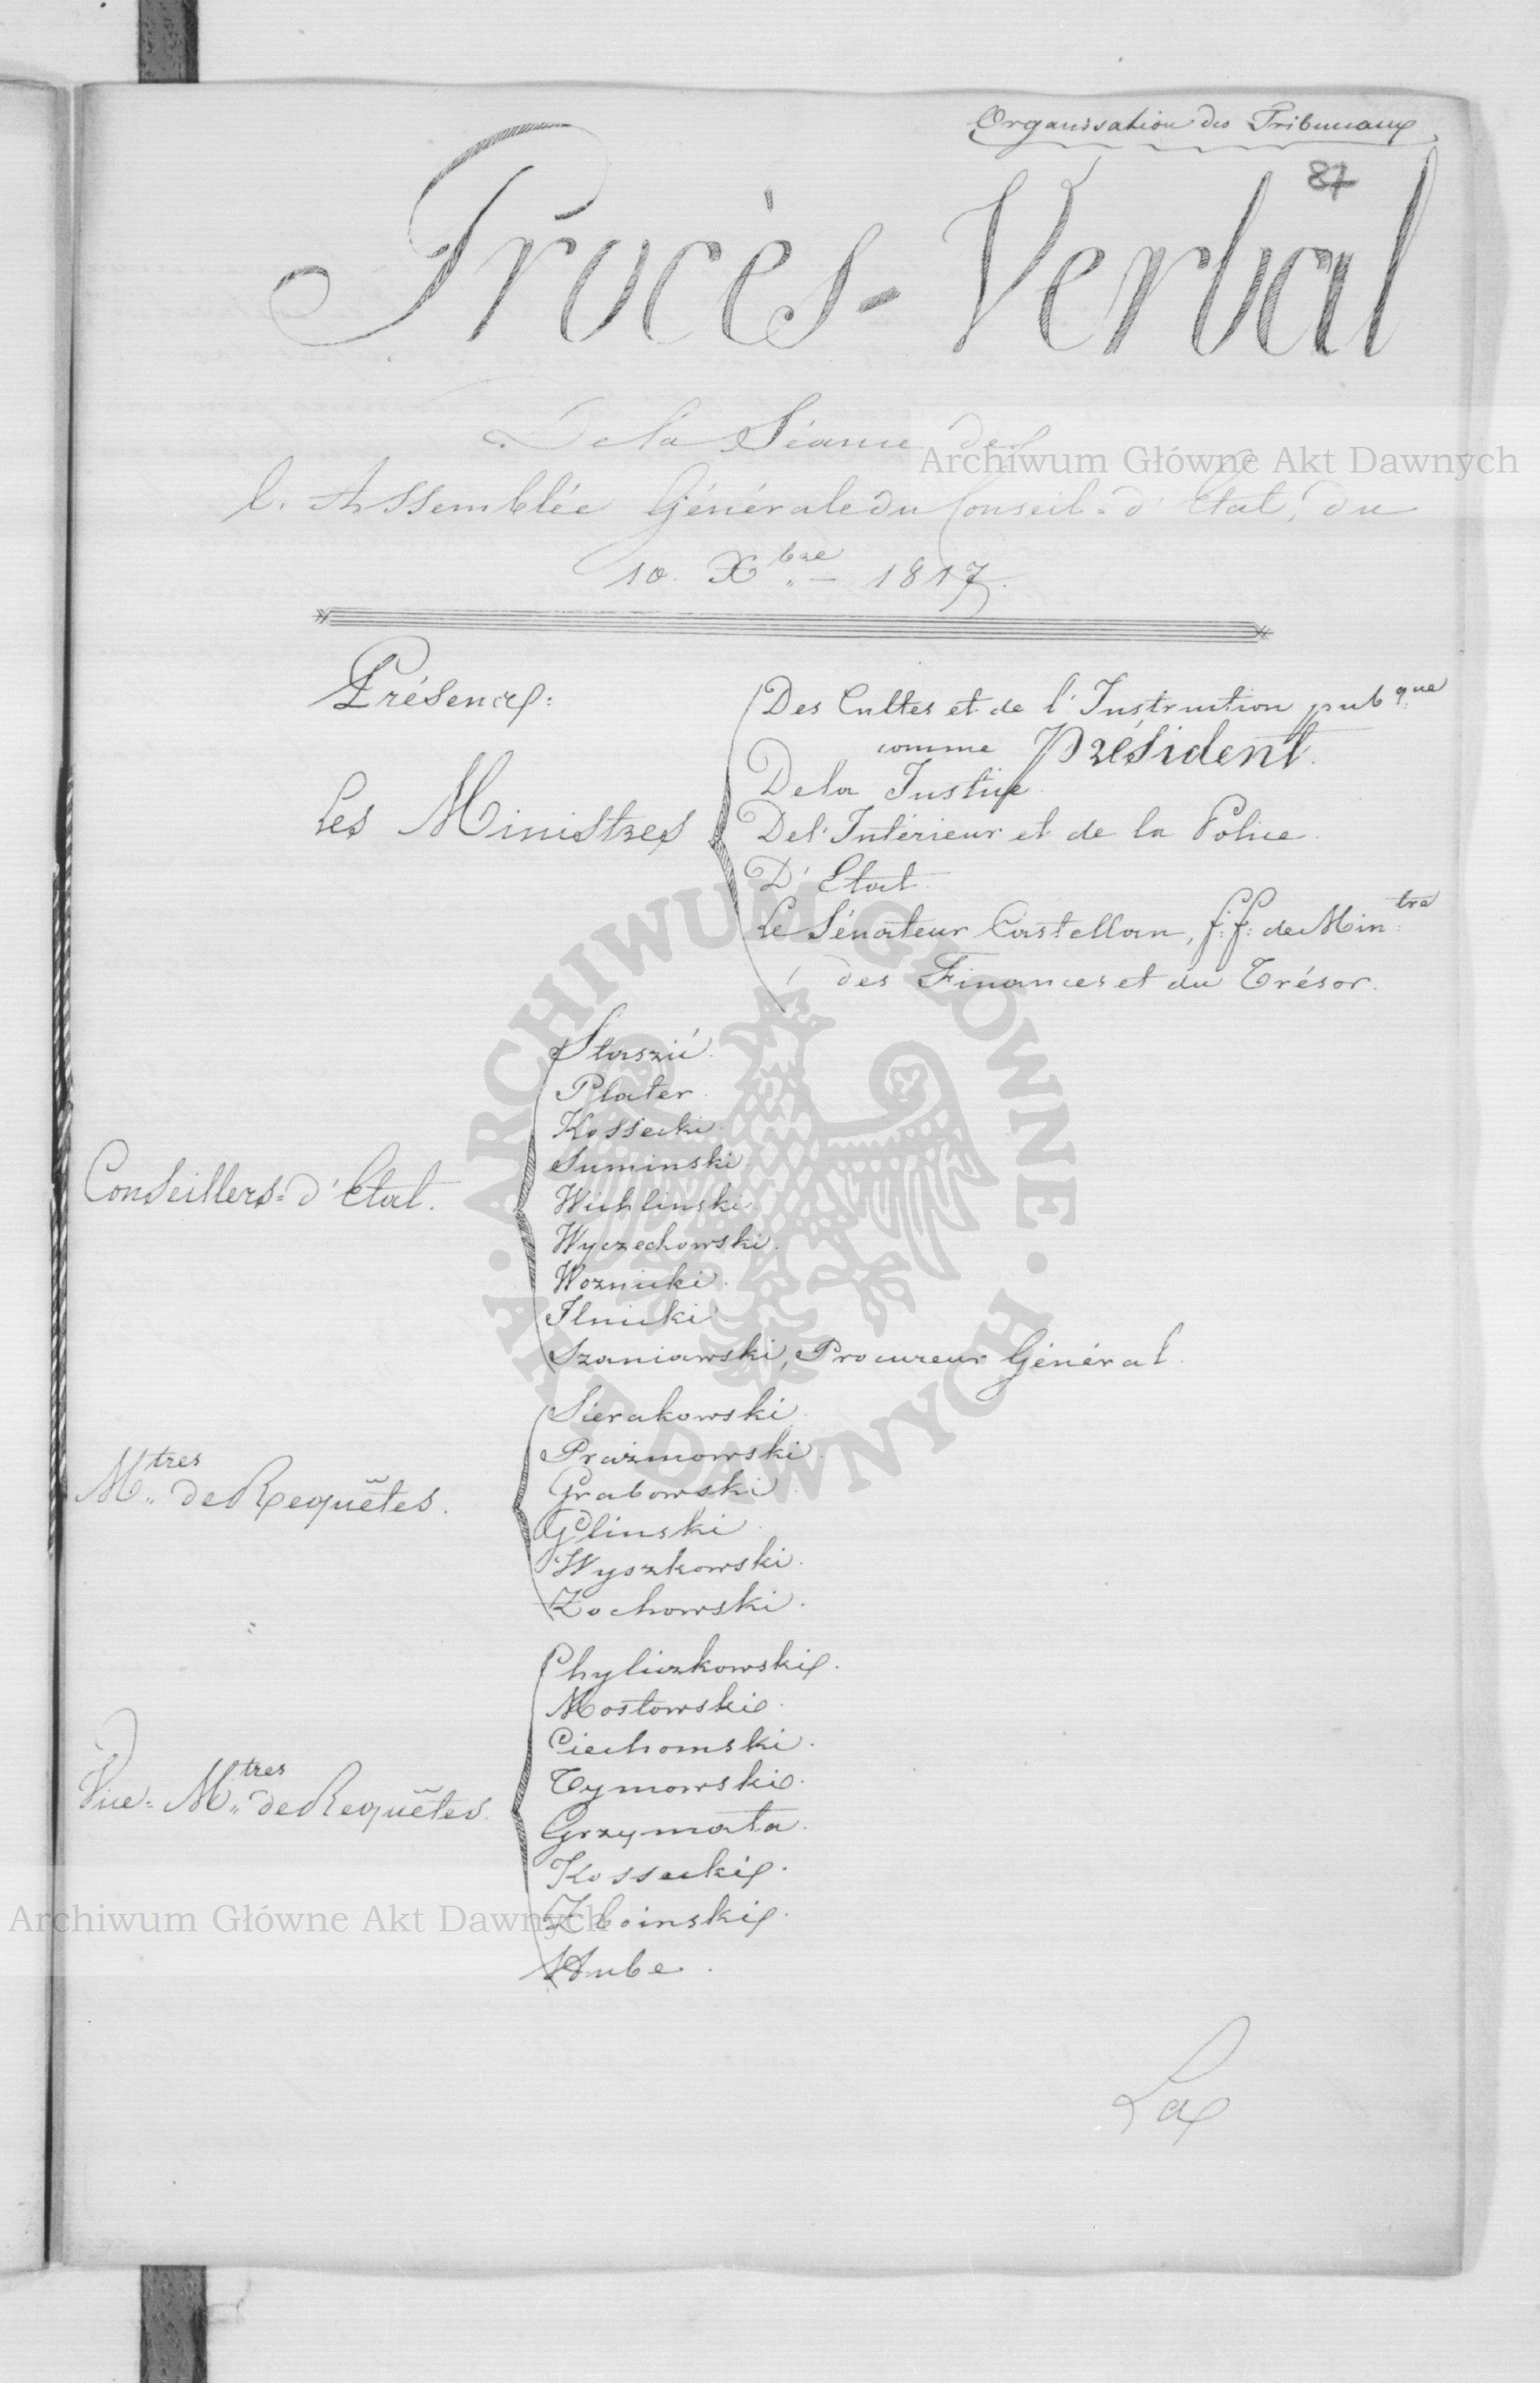 Organisation des Tribunaux
87
Procès-Verbal
De la Séance de
l'Assemblée Générale du Conseil-d'Etat, du
10. Xbre 1817.
Présence:
Les Ministres
Des Cultes et de l'Instruction pubque
comme Président.
De la Justice.
De l'Intérieur et de la Police.
D'Etat.
Le Sénateur Castellan, f:f: de Mintre
des Finances et du Trésor.
Conseillers-d'Etat.
Staszić.
Plater.
Kossecki.
Suminski.
Wichlinski.
Wyczechowski.
Woznicki.
Ilnicki
Szaniawski, Procureur Général.
Mtres de Requêtes.
Sierakowski.
Prażmowski.
Grabowski.
Glinski.
Wyszkowski.
Zochowski.
Vice-Mtres de Requêtes.
Chyliczkowski.
Mostowski.
Ciechomski.
Tymowski.
Grzymała.
Kossecki.
Zboinski.
Hube.
La
Archiwum Główne Akt Dawnych
ARCHIWUM GŁÓWNE
AKT DAWNYCH
Archiwum Główne Akt Dawnych